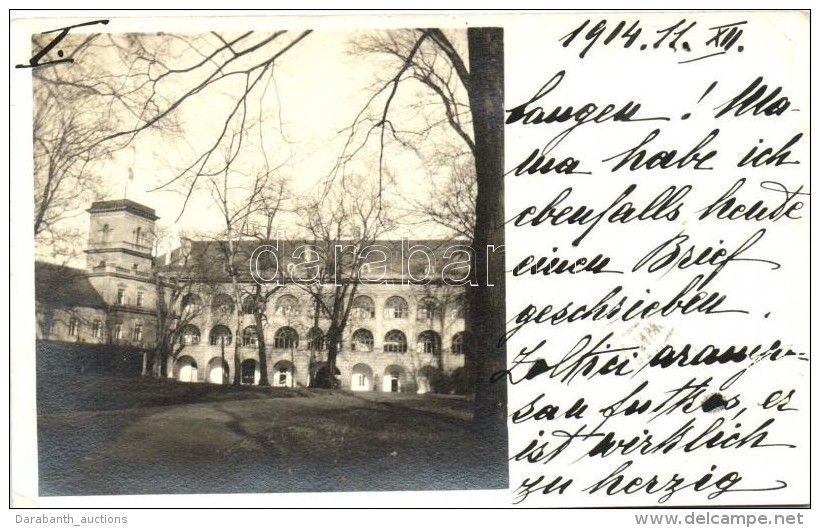 I.
1914. 11. XII.
langen! Ma-
ma habe ich
ebenfalls heute
einen Brief
geschrieben.
Zoltsi aranyo-
san futkos, er
ist wirklich
zu herzig
darabanth
Darabanth_auctions
www.delcampe.net